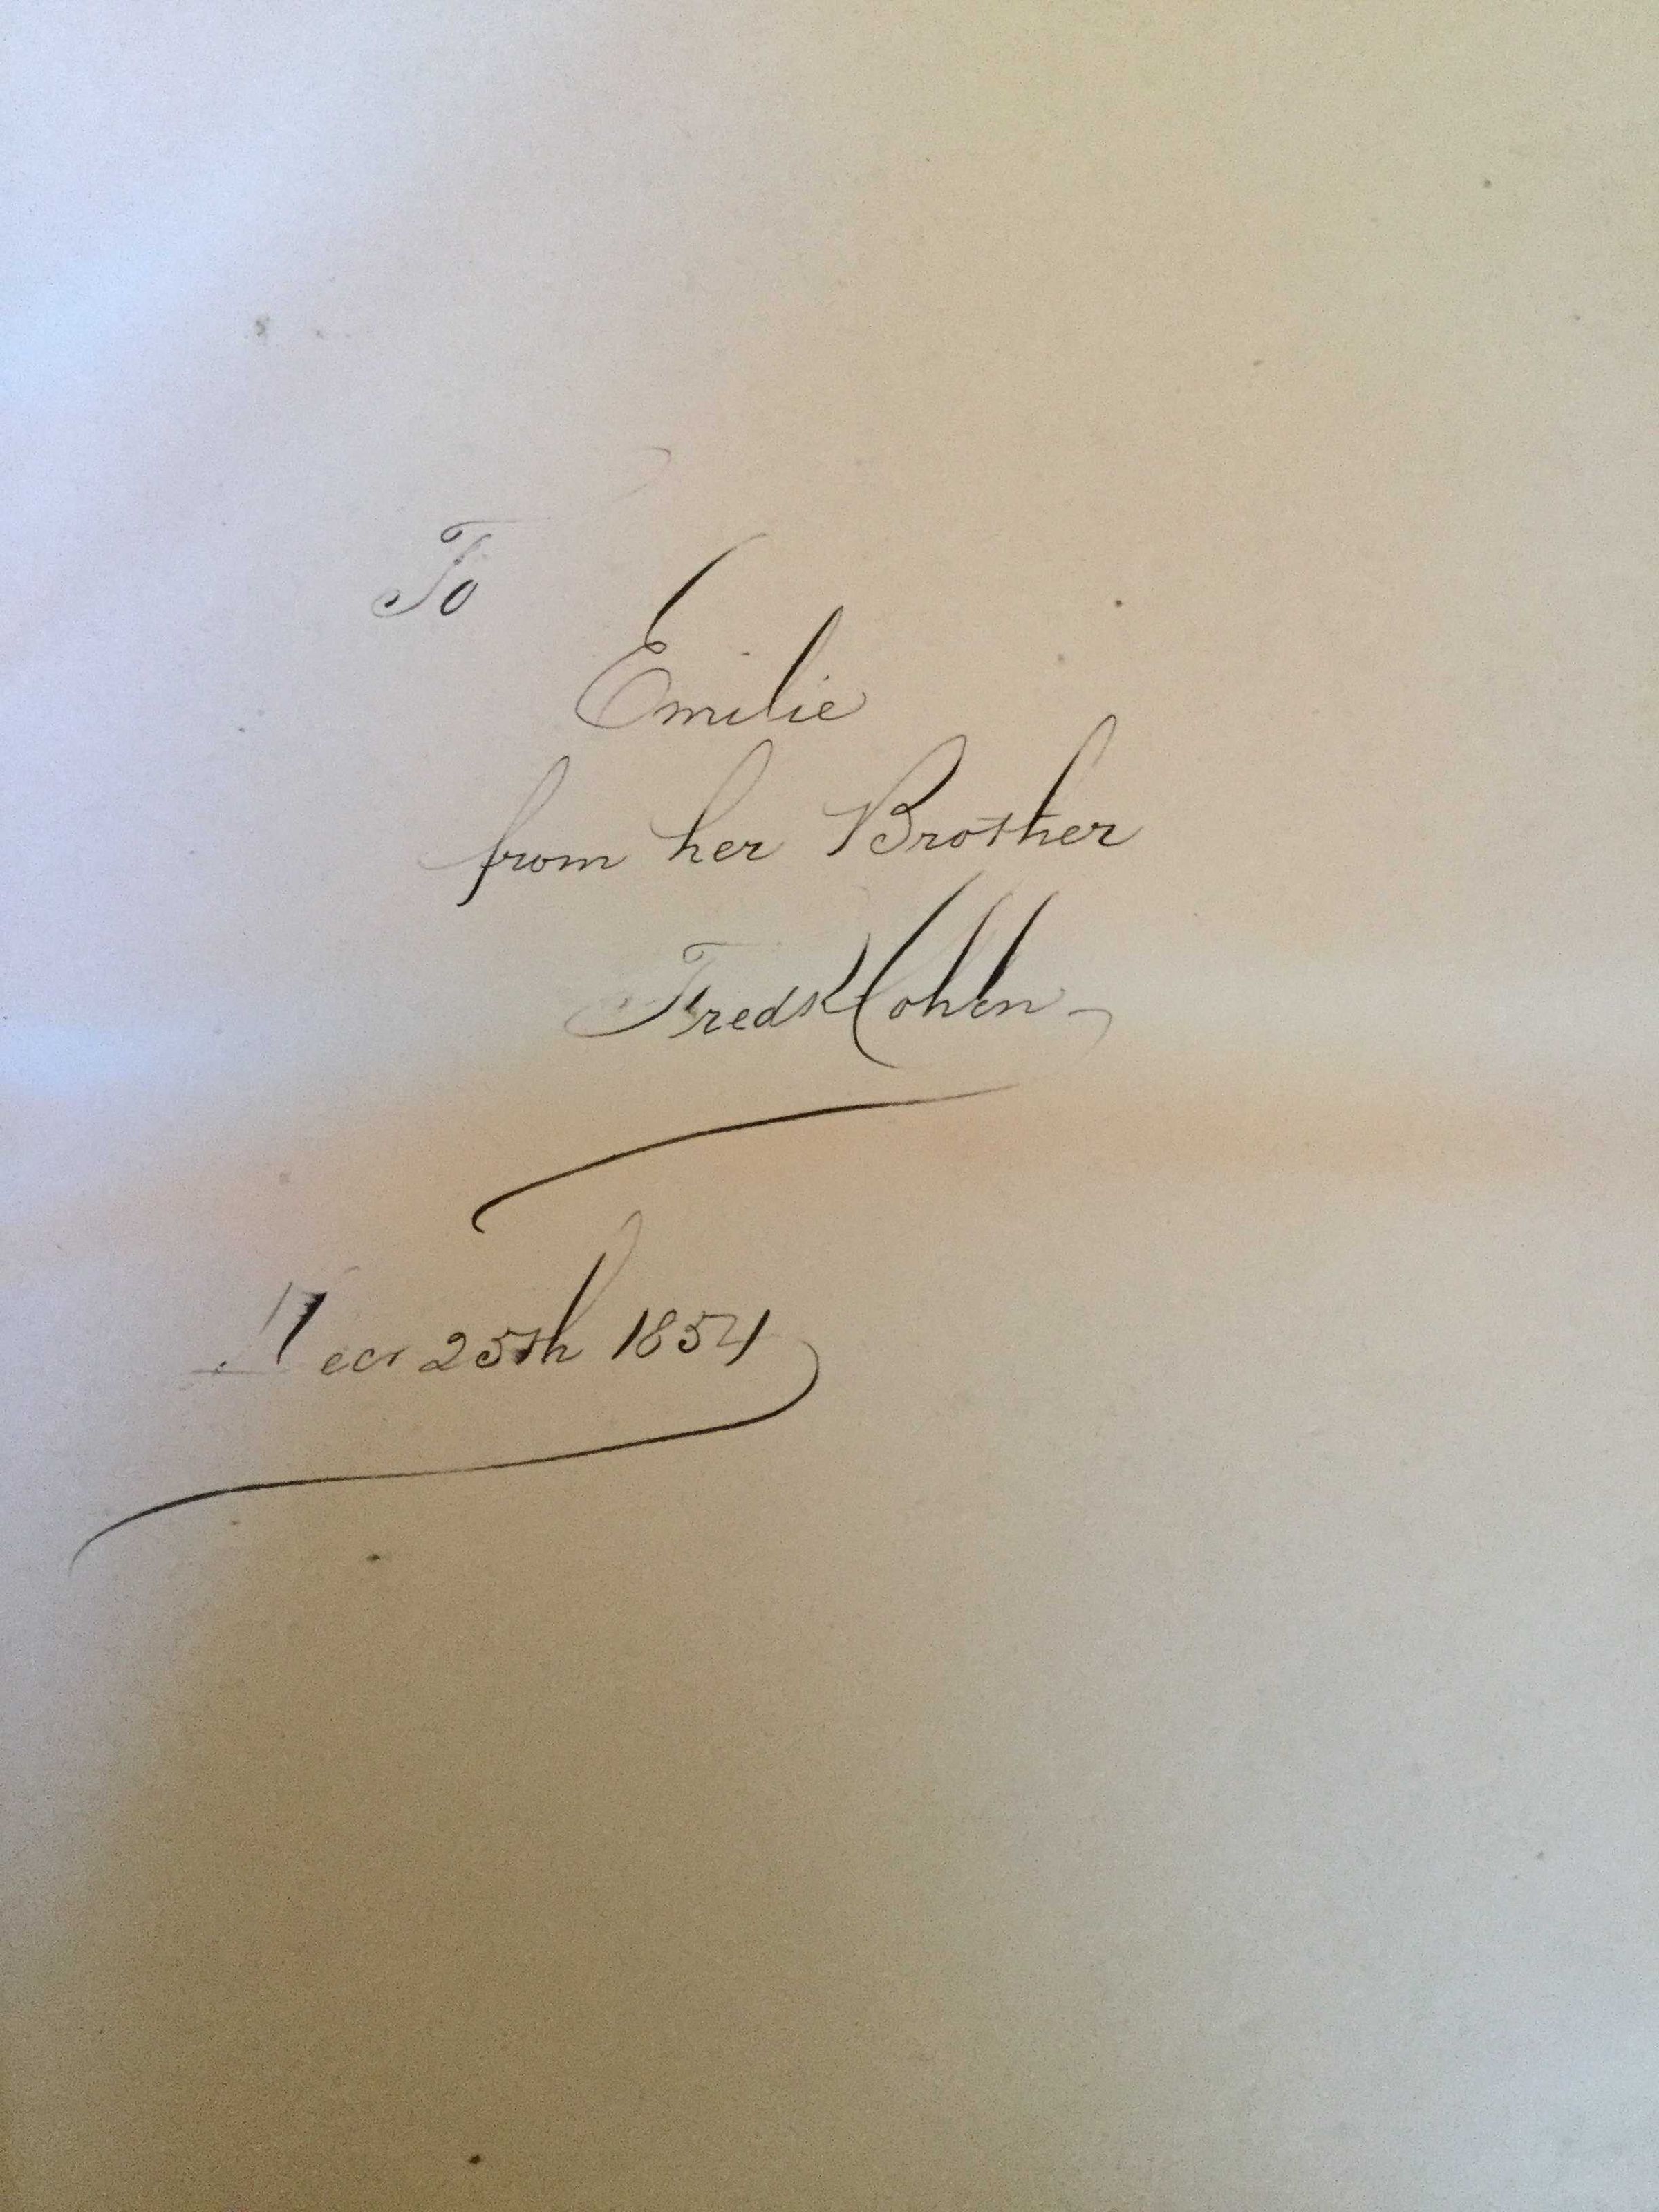 To
Emilie
from her Brother
Fredk Cohen
Decr 25th 1854